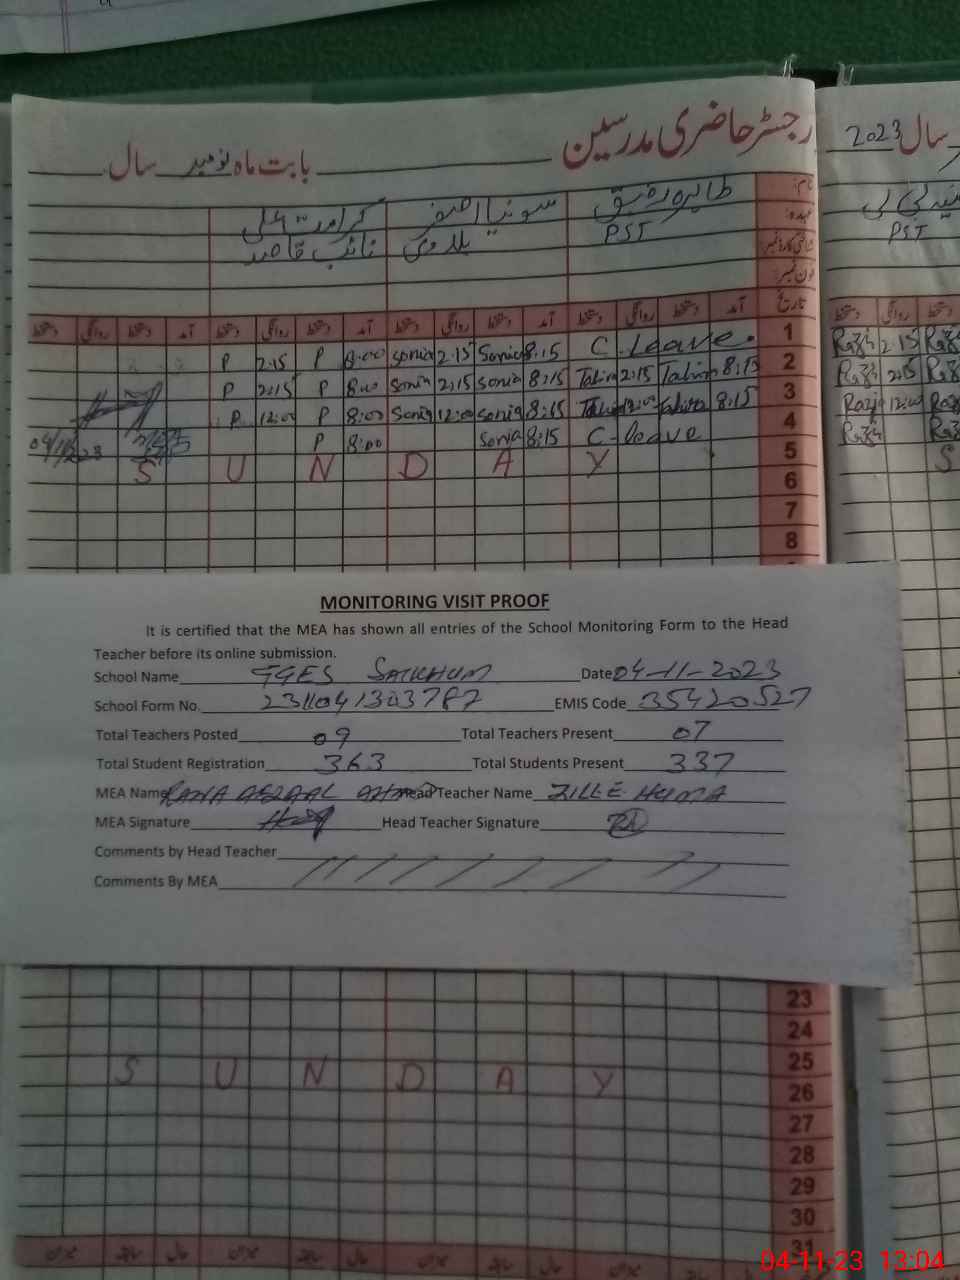 رجسٹر حاضری مدرسین بابت ماہ نومبر سال
سال 2023
نام: طاہرہ رفیق سونیا اصغر کرامت علی
عہدہ: PST نائب قاصد
PST
شناختی کارڈ نمبر
فون نمبر:
تاریخ آمد دستخط روانگی دستخط آمد دستخط روانگی دستخط آمد دستخط روانگی دستخط آمد دستخط روانگی دستخط
P 2:15 P 8:00 Sonia 2:15 Sonia 8:15 C leave. 1
P 2:15 P 8:00 Sonia 2:15 Sonia 8:15 Tahira 2:15 Tahira 8:15 2
P 12:00 P 8:00 Sonia 12:00 Sonia 8:15 Tahira 12:00 Tahira 8:15 3
04/11/2023 P 8:00 Sonia 8:15 C-leave 4
S U N D A Y 5
6
7
8
2:15
2:15
12:00
S
MONITORING VISIT PROOF
It is certified that the MEA has shown all entries of the School Monitoring Form to the Head
Teacher before its online submission.
School Name GGES SATKHUM Date 04-11-2023
School Form No. 2311041303787 EMIS Code 35420527
Total Teachers Posted 09 Total Teachers Present 07
Total Student Registration 363 Total Students Present 337
MEA Name RANA AFZAAL AHMAD Head Teacher Name ZILLE HUMA
MEA Signature Head Teacher Signature
Comments by Head Teacher
Comments By MEA
23
24
25
S U N D A Y 26
27
28
29
30
31
میزان سابقہ حال میزان سابقہ حال میزان سابقہ حال میزان سابقہ حال
04-11-23 13:04